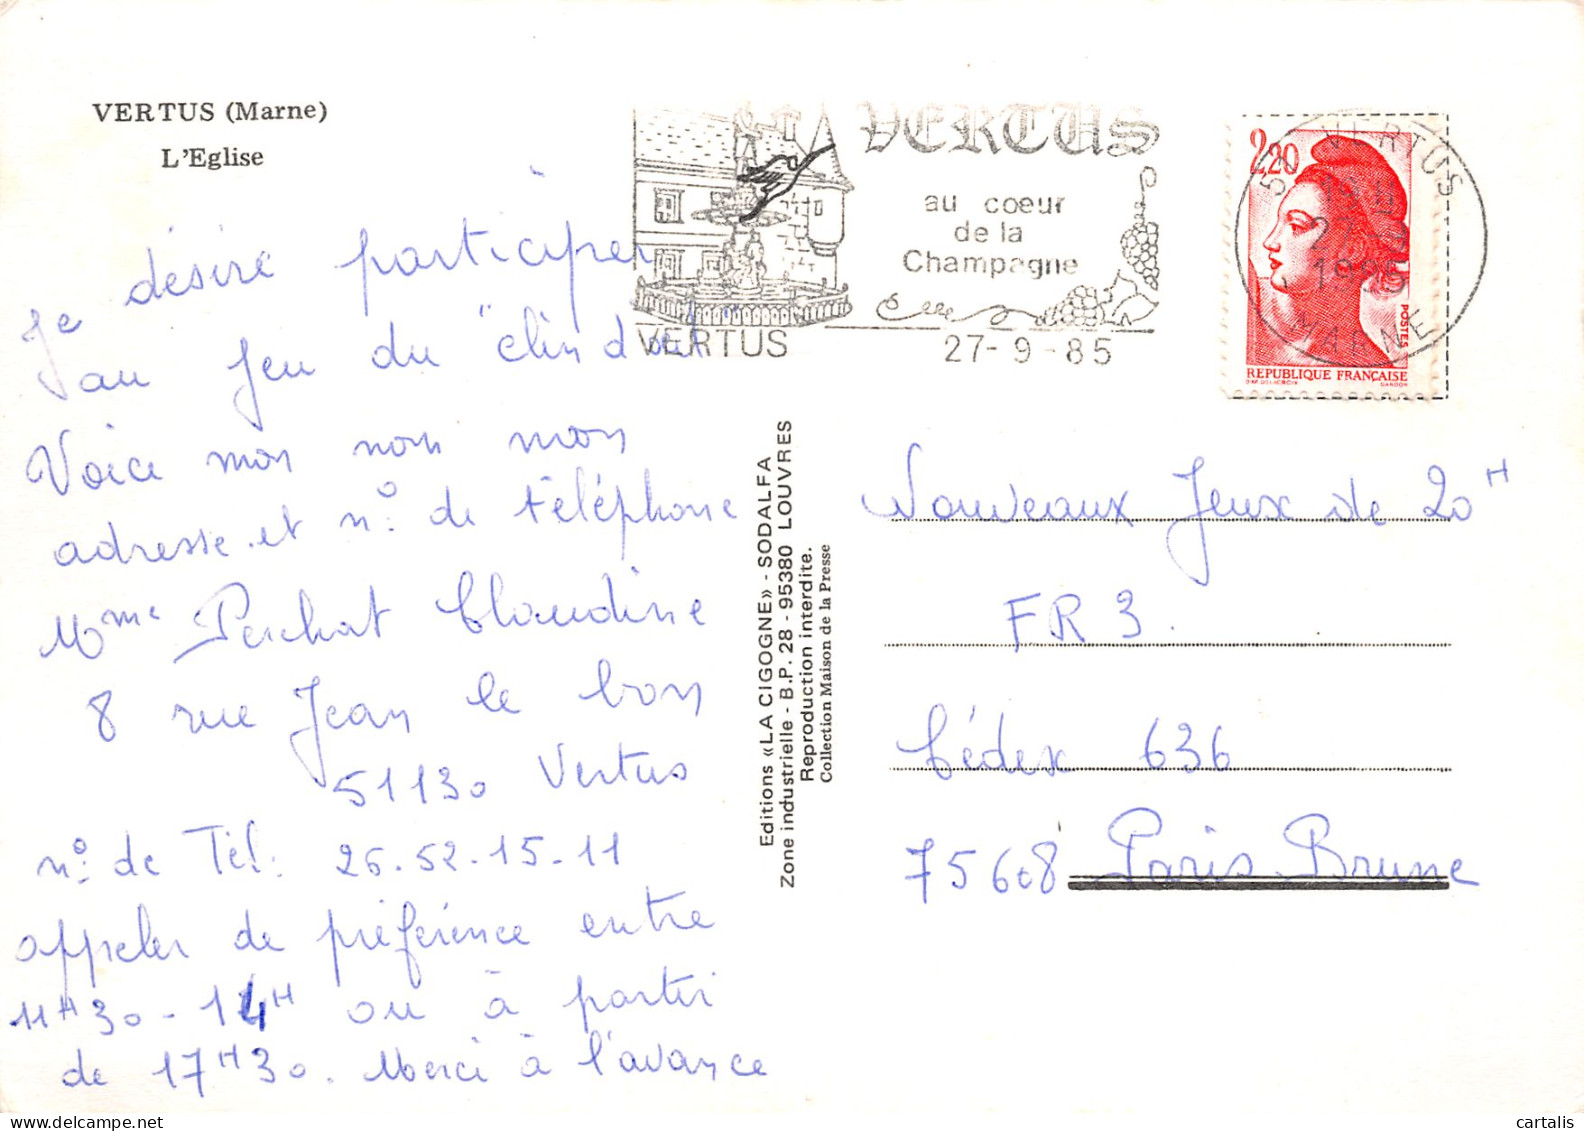 VERTUS (Marne)
L'Eglise
VERTUS
au coeur
de la
Champagne
VERTUS
27-9-85
51 VERTUS
27-9
1985
MARNE
2,20
POSTES
REPUBLIQUE FRANÇAISE
D'AP. DELACROIX GANDON
Je désire participer
au Jeu du "clin d'œil"
Voice mon nom mon
adresse et n° de téléphone
Mme Perchat Claudine
8 rue Jean le bon
51130 Vertus
n° de Tél: 26.52.15.11
appeler de préférence entre
11H30 - 14H ou à partir
de 17H30. Merci à l'avance
Editions «LA CIGOGNE» - SODALFA
Zone industrielle - B.P. 28 - 95380 LOUVRES
Reproduction interdite.
Collection Maison de la Presse
Nouveaux Jeux de 20H
FR3.
Cédex 636
75608 Paris Brune
cartalis